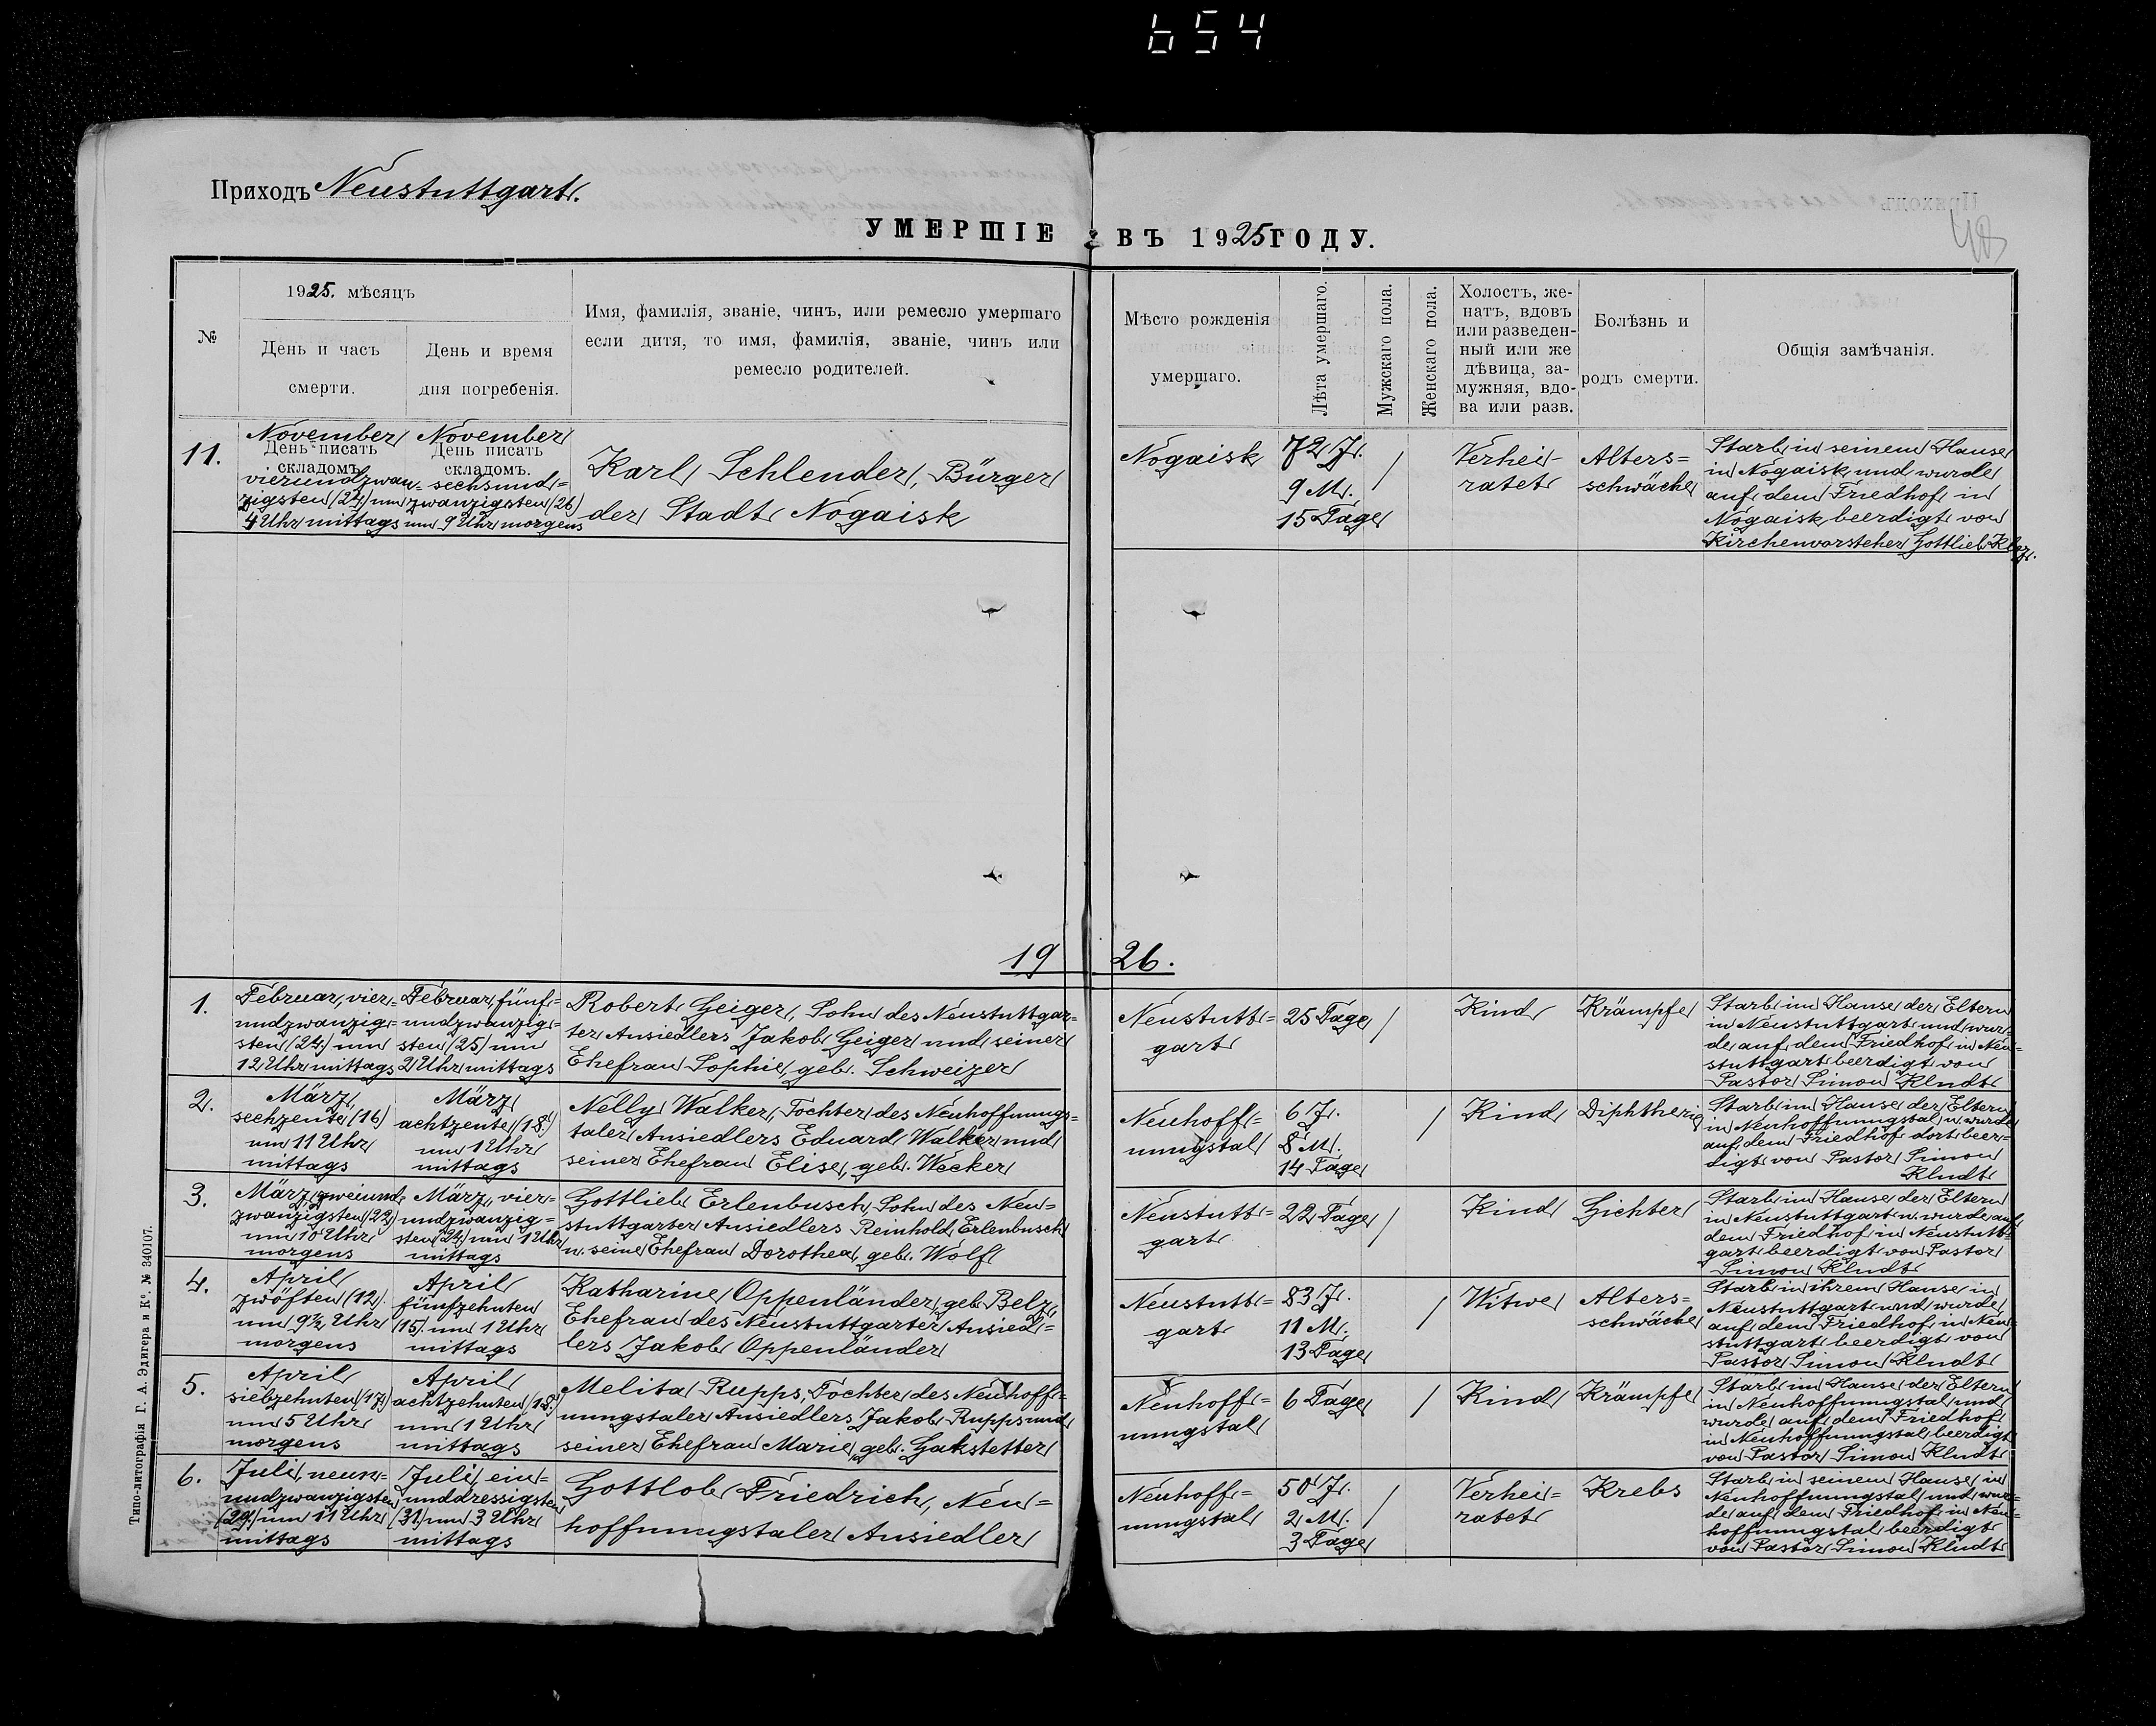 654
Приходъ Neustuttgart.
УМЕРШІЕ ВЪ 1925 ГОДУ.
№
1925. мѣсяцъ
День и часъ
смерти.
День и время
дня погребенія.
Имя, фамилія, званіе, чинъ, или ремесло умершаго
если дитя, то имя, фамилія, званіе, чинъ или
ремесло родителей.
Мѣсто рожденія
умершаго.
Лѣта умершаго.
Мужскаго пола.
Женскаго пола.
Холостъ, же-
натъ, вдовъ
или разведен-
ный или же
дѣвица, за-
мужняя, вдо-
ва или разв.
Болѣзнь и
родъ смерти.
Общія замѣчанія.
11.
November
День писать
складомъ.
vierundzwan-
zigsten (24) um
4 Uhr mittags
November
День писать
складомъ.
sechsund=
zwanzigsten (26)
um 9 Uhr morgens
Karl Schlender, Bürger
der Stadt Nogaisk
Nogaisk
72 J.
9 M.
15 Tage
/
Verhei-
ratet
Alters=
schwäche
Starb in seinem Hause
in Nogaisk und wurde
auf dem Friedhof in
Nogaisk beerdigt von
Kirchenvorsteher Gottlieb
1926.
1.
Februar, vier=
undzwanzig=
sten (24.) um
12 Uhr mittags
Februar, fünf=
undzwanzig=
sten (25) um
2 Uhr mittags
Robert Geiger, Sohn des Neustuttgar=
ter Ansiedlers Jakob Geiger und seiner
Ehefrau Sophie, geb. Schweizer
Neustutt=
gart
25 Tage
/
Kind
Krämpfe
Starb im Hause der Eltern
in Neustuttgart und wur=
de auf dem Friedhof in Neu=
stuttgart beerdigt von
Pastor Simon Kludt
2.
März,
sechzente (16)
um 11 Uhr
mittags
März
achtzente (18.)
um 1 Uhr
mittags
Nelly Walker, Tochter des Neuhoffnungs=
taler Ansiedlers Eduard Walker und
seiner Ehefrau Elise, geb. Wecker
Neuhoff=
nungstal
6 J.
8 M.
14 Tage
/
Kind
Diphtherie
Starb im Hause der Eltern
in Neuhoffnungstal u. wurde
auf dem Friedhof dort beer=
digt von Pastor Simon
Kludt
3.
März, zweiund
zwanzigsten (22)
um 10 Uhr
morgens
März, vier=
undzwanzig=
sten (24) um 1 Uhr
mittags
Gottlieb Erlenbusch, Sohn des Neu=
stuttgarter Ansiedlers Reinhold Erlenbusch
u. seine Ehefrau Dorothea, geb. Wolf
Neustutt=
gart
22 Tage
/
Kind
Gichter
Starb im Hause der Eltern
in Neustuttgart u. wurde auf
dem Friedhof in Neustutt=
gart beerdigt von Pastor
Simon Kludt
4.
April
zwöften (12).
um 9½ Uhr
morgens
April
fünfzehnten
(15). um 1 Uhr
mittags
Katharine Oppenländer, geb. Belz,
Ehefrau des Neustuttgarter Ansied=
lers Jakob Oppenländer
Neustutt=
gart
83 J.
11 M.
13 Tage
/
Witwe
Alters=
schwäche
Starb in ihrem Hause in
Neustuttgart und wurde
auf dem Friedhof in Neu=
stuttgart beerdigt von
Pastor Simon Kludt
5.
April
siebzehnten (17.)
um 5 Uhr
morgens
April
achtzehnten (18.)
um 1 Uhr
mittags
Melita Rupps, Tochter des Neuhoff=
nungstaler Ansiedlers Jakob Rupps und
seiner Ehefrau Marie, geb. Gakstetter
Neuhoff=
nungstal
6 Tage
/
Kind
Krämpfe
Starb im Hause der Eltern
in Neuhoffnungstal und
wurde auf dem Friedhof
in Neuhoffnungstal beerdigt
von Pastor Simon Kludt
6.
Juli, neun=
undzwanzigsten
(29.) um 11 Uhr
mittags
Juli, ein=
unddressigsten
(31.) um 3 Uhr
mittags
Gottlob Friedrich, Neu=
hoffnungstaler Ansiedler
Neuhoff=
nungstal
50 J.
2 M.
3 Tage
/
Verhei=
ratet
Krebs
Starb in seinem Hause in
Neuhoffnungstal und wur=
de auf dem Friedhof in Neu=
hoffnungstal beerdigt
von Pastor Simon Kludt
Типо-литографія Г. А. Эдигера и Ко. № 340107.